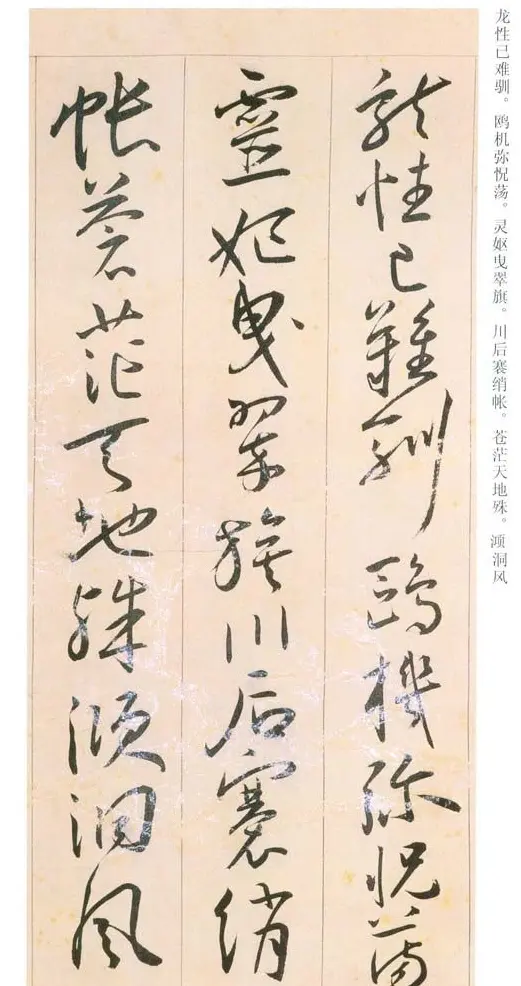 龙性已难驯。鸥机弥怳荡。灵妪曳翠旗。川后褰绡帐。苍茫天地殊。澒洞风
龍性已難馴鷗機弥怳蕩
靈妪曳翠旗川后褰绡
帐蒼茫天地殊澒洞風